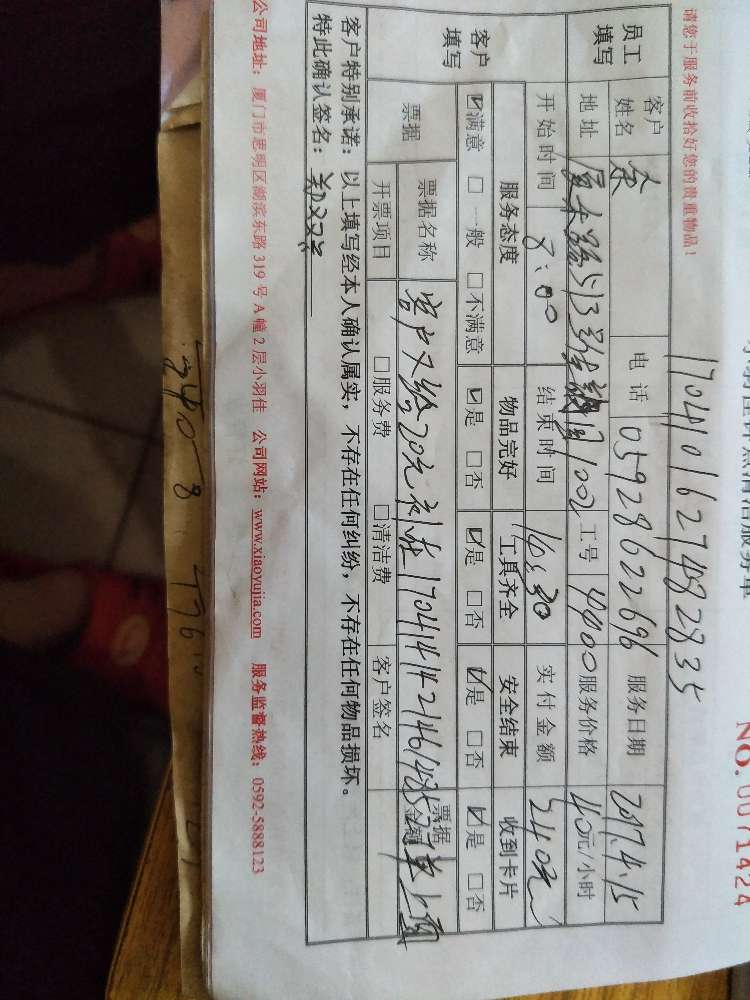 清洁服务单
NO. 0071424
请您于服务前收拾好您的贵重物品！
17041016274832835
员工填写 客户姓名 余 电话 05928622696 服务日期 2017.4.15
地址 厦禾路513号 1002 工号 4400 服务价格 40元/小时
开始时间 8:00 结束时间 14:30 实付金额 240元
客户填写 服务态度 物品完好 工具齐全 安全结束 收到卡片
☑满意 □一般 □不满意 ☑是 □否 ☑是 □否 ☑是 □否 ☑是 □否
票据 票据名称 客户又给20元 在 单上面 票据金额
开票项目 □服务费 □清洁费 客户签名
客户特别承诺：以上填写经本人确认属实，不存在任何纠纷，不存在任何物品损坏。
特此确认签名：
公司地址：厦门市思明区湖滨东路 319 号 A 幢 2 层小羽佳 公司网站：www.xiaoyujia.com 服务监督热线：0592-5888123